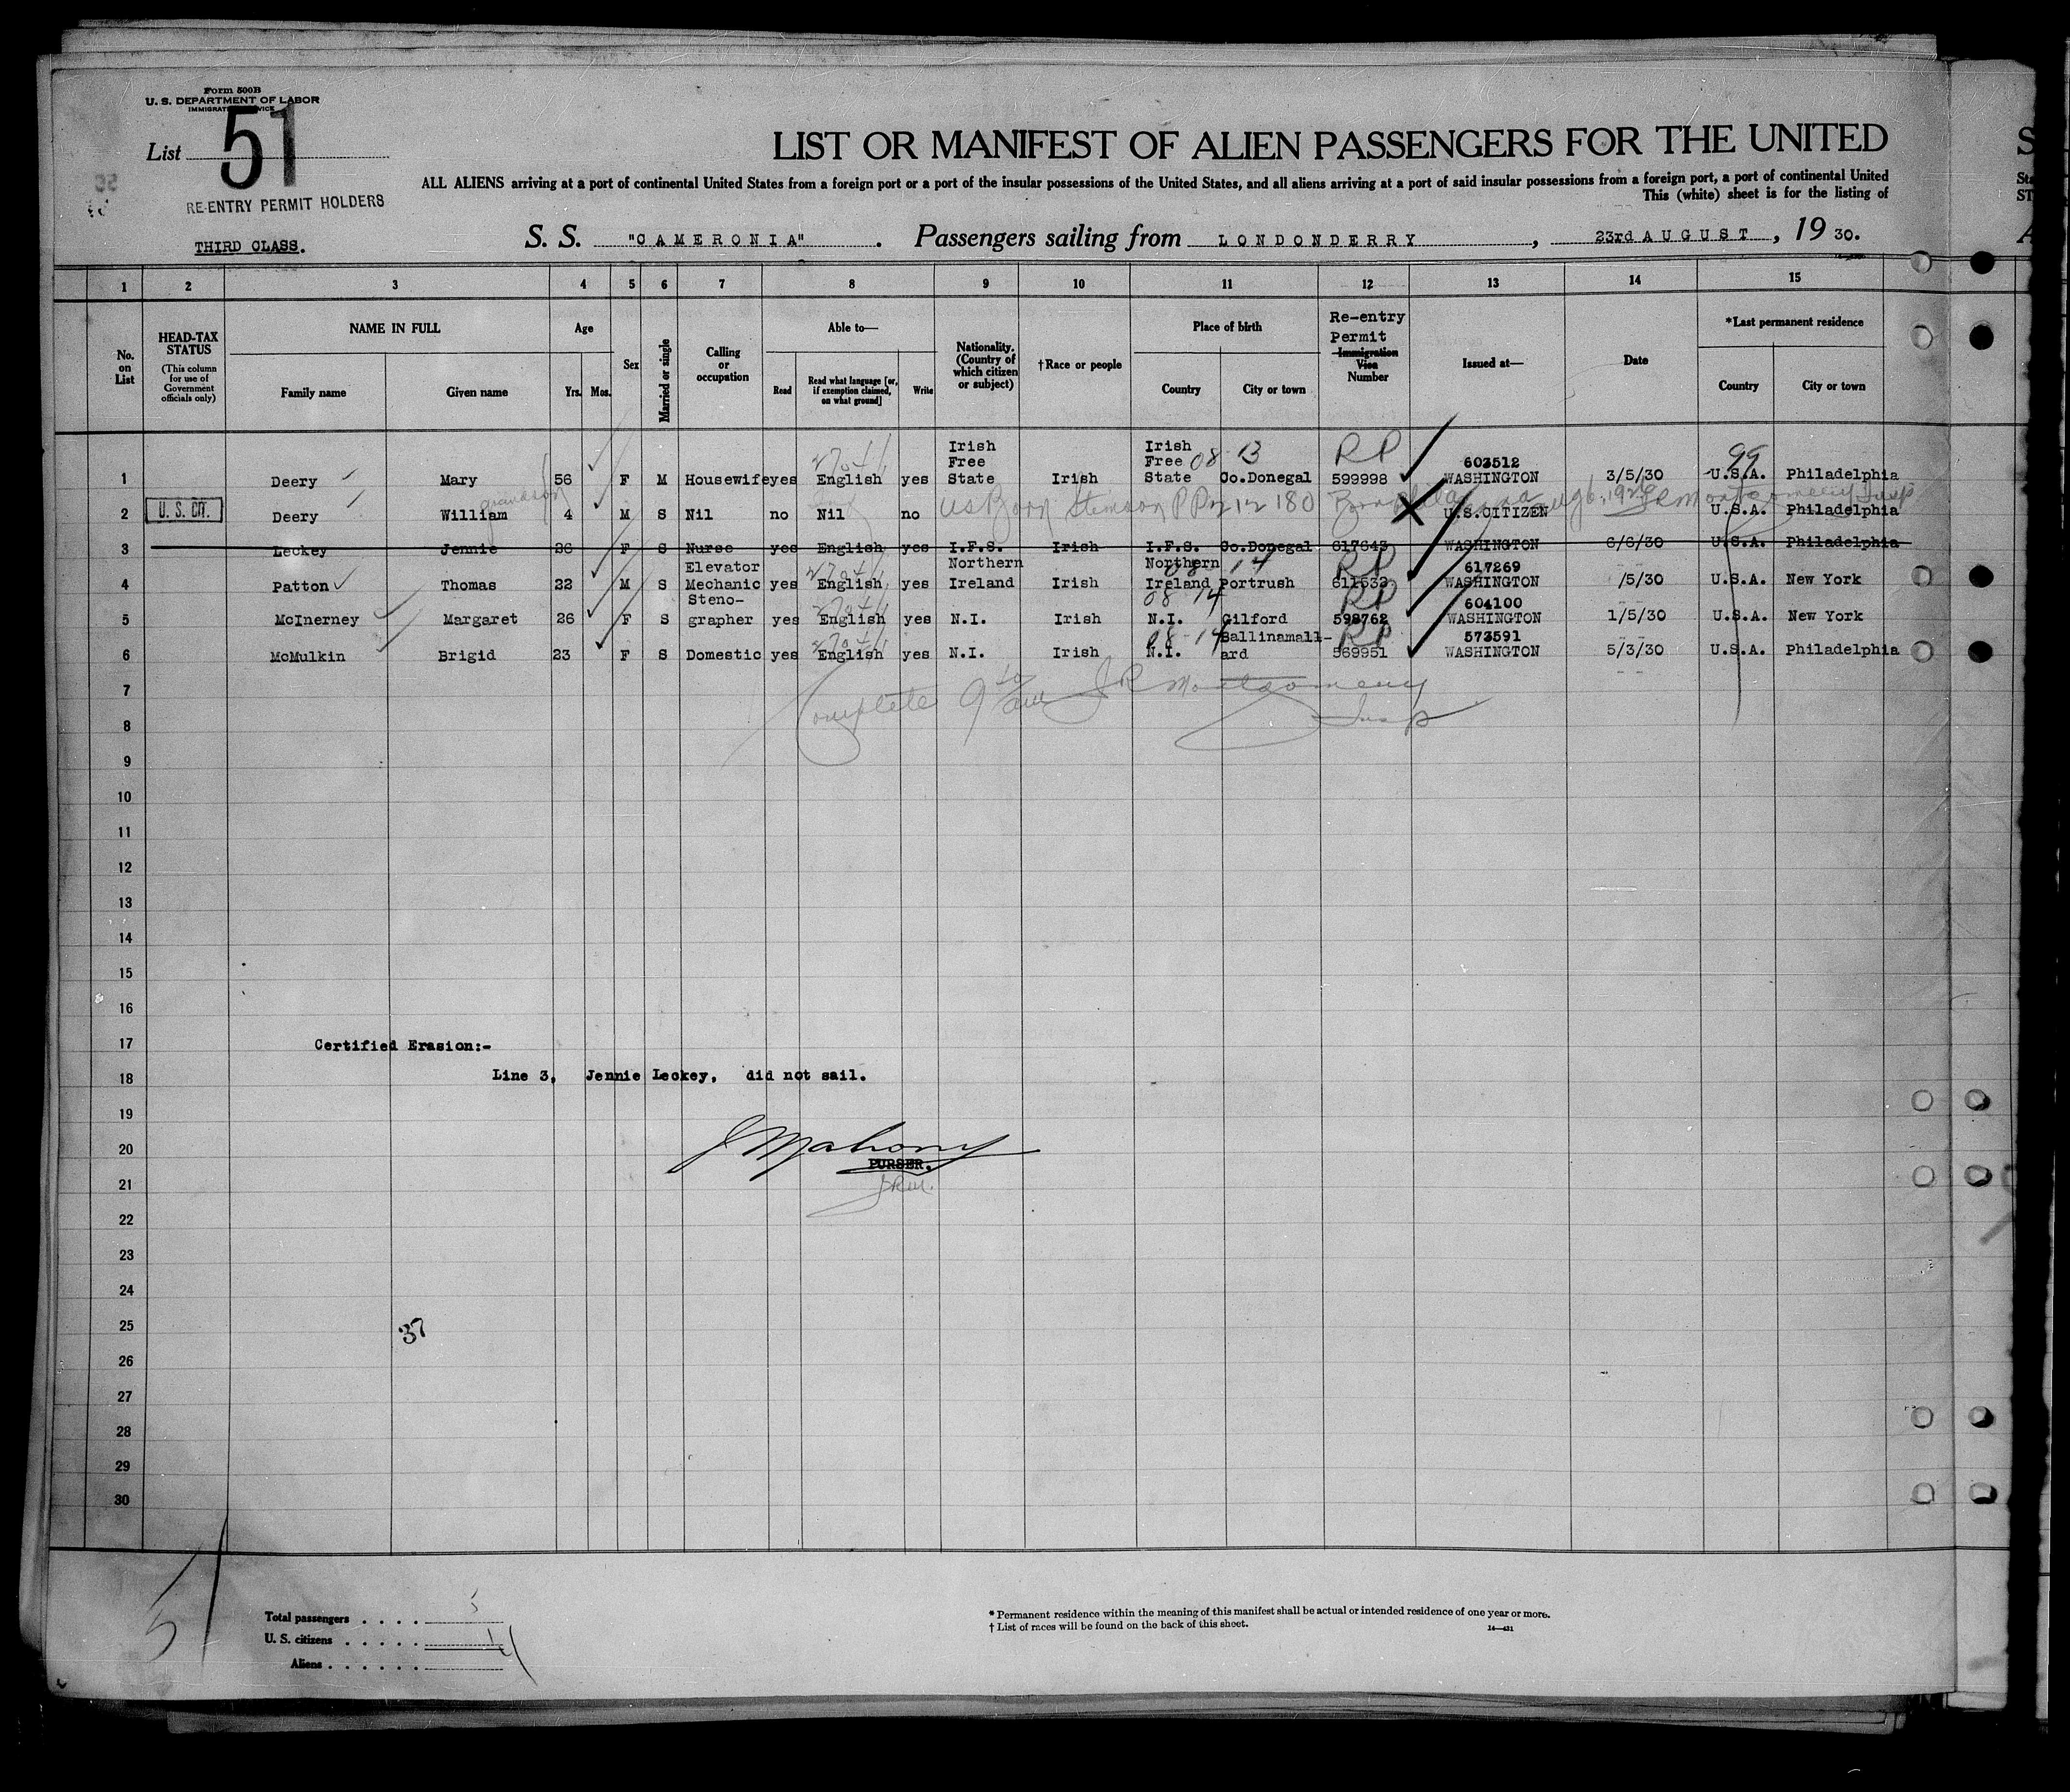 Form 500B
U. S. DEPARTMENT OF LABOR
List 51
RE-ENTRY PERMIT HOLDERS
THIRD CLASS.
LIST OR MANIFEST OF ALIEN PASSENGERS FOR THE UNITED
ALL ALIENS arriving at a port of continental United States from a foreign port or a port of the insular possessions of the United States, and all aliens arriving at a port of said insular possessions from a foreign port, a port of continental United
This (white) sheet is for the listing of
S. S. "CAMERONIA" . Passengers sailing from LONDONDERRY , 23rd AUGUST , 19 30.
1 2 3 4 5 6 7 8 9 10 11 12 13 14 15
No. on List
HEAD-TAX STATUS (This column for use of Government officials only)
NAME IN FULL Family name Given name
Age Yrs. Mos.
Sex
Married or single
Calling or occupation
Able to— Read Read what language [or, if exemption claimed, on what ground] Write
Nationality. (Country of which citizen or subject)
†Race or people
Place of birth Country City or town
Re-entry Permit Immigration Visa Number
Issued at—
Date
*Last permanent residence Country City or town
1 Deery Mary 56 F M Housewife yes English yes Irish Free State Irish Irish Free State Co.Donegal 599998 603512 WASHINGTON 3/5/30 U.S.A. Philadelphia
08-13 RP 99
grandson
U. S. CIT.
2 Deery William 4 M S Nil no Nil no US Born Stimson PP U.S.CITIZEN U.S.A. Philadelphia
3 Leckey Jennie 26 F S Nurse yes English yes I.F.S. Irish I.F.S. Co.Donegal 617643 WASHINGTON 6/6/30 U.S.A. Philadelphia
4 Patton Thomas 22 M S Elevator Mechanic yes English yes Northern Ireland Irish Northern Ireland Portrush 611533 617269 WASHINGTON /5/30 U.S.A. New York
14 RP
5 McInerney Margaret 26 F S Steno-grapher yes English yes N.I. Irish N.I. Gilford 598762 604100 WASHINGTON 1/5/30 U.S.A. New York
08-14 RP
6 McMulkin Brigid 23 F S Domestic yes English yes N.I. Irish N.I. Ballinamall-ard 569951 573591 WASHINGTON 5/3/30 U.S.A. Philadelphia
08-14 RP
7
Complete JR Montgomery
Insp
8
9
10
11
12
13
14
15
16
17 Certified Erasion:-
18 Line 3, Jennie Leckey, did not sail.
19
20 J Mahony
PURSER.
JRM.
21
22
23
24
25 37
26
27
28
29
30
51
Total passengers . . . . 5
U. S. citizens . . . . . 1
Aliens . . . . . . 4
* Permanent residence within the meaning of this manifest shall be actual or intended residence of one year or more.
† List of races will be found on the back of this sheet.
14—431